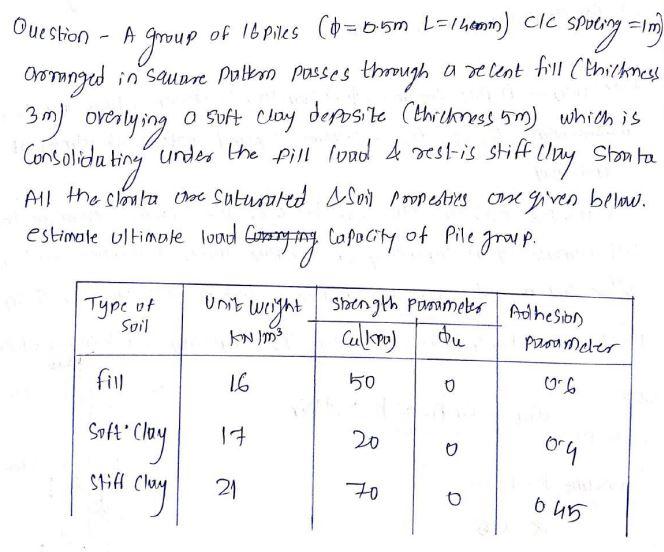 Question - A group of 16 piles (ϕ = 0.5m L = 14mm) c/c spacing = 1m)
arranged in square pattern passes through a recent fill (thickness
3m) overlying a soft clay deposite (thickness 5m) which is
Consolidating under the fill load & rest is stiff clay strata
All the strata are saturated & soil properties are given below.
estimate ultimate load capacity of pile group.
Type of Soil | Unit weight kN/m³ | Strength parameter Cu(kpa) ϕu | Adhesion parameter
fill 16 50 0 0.6
Soft clay 17 20 0 0.4
Stiff clay 21 70 0 0.45